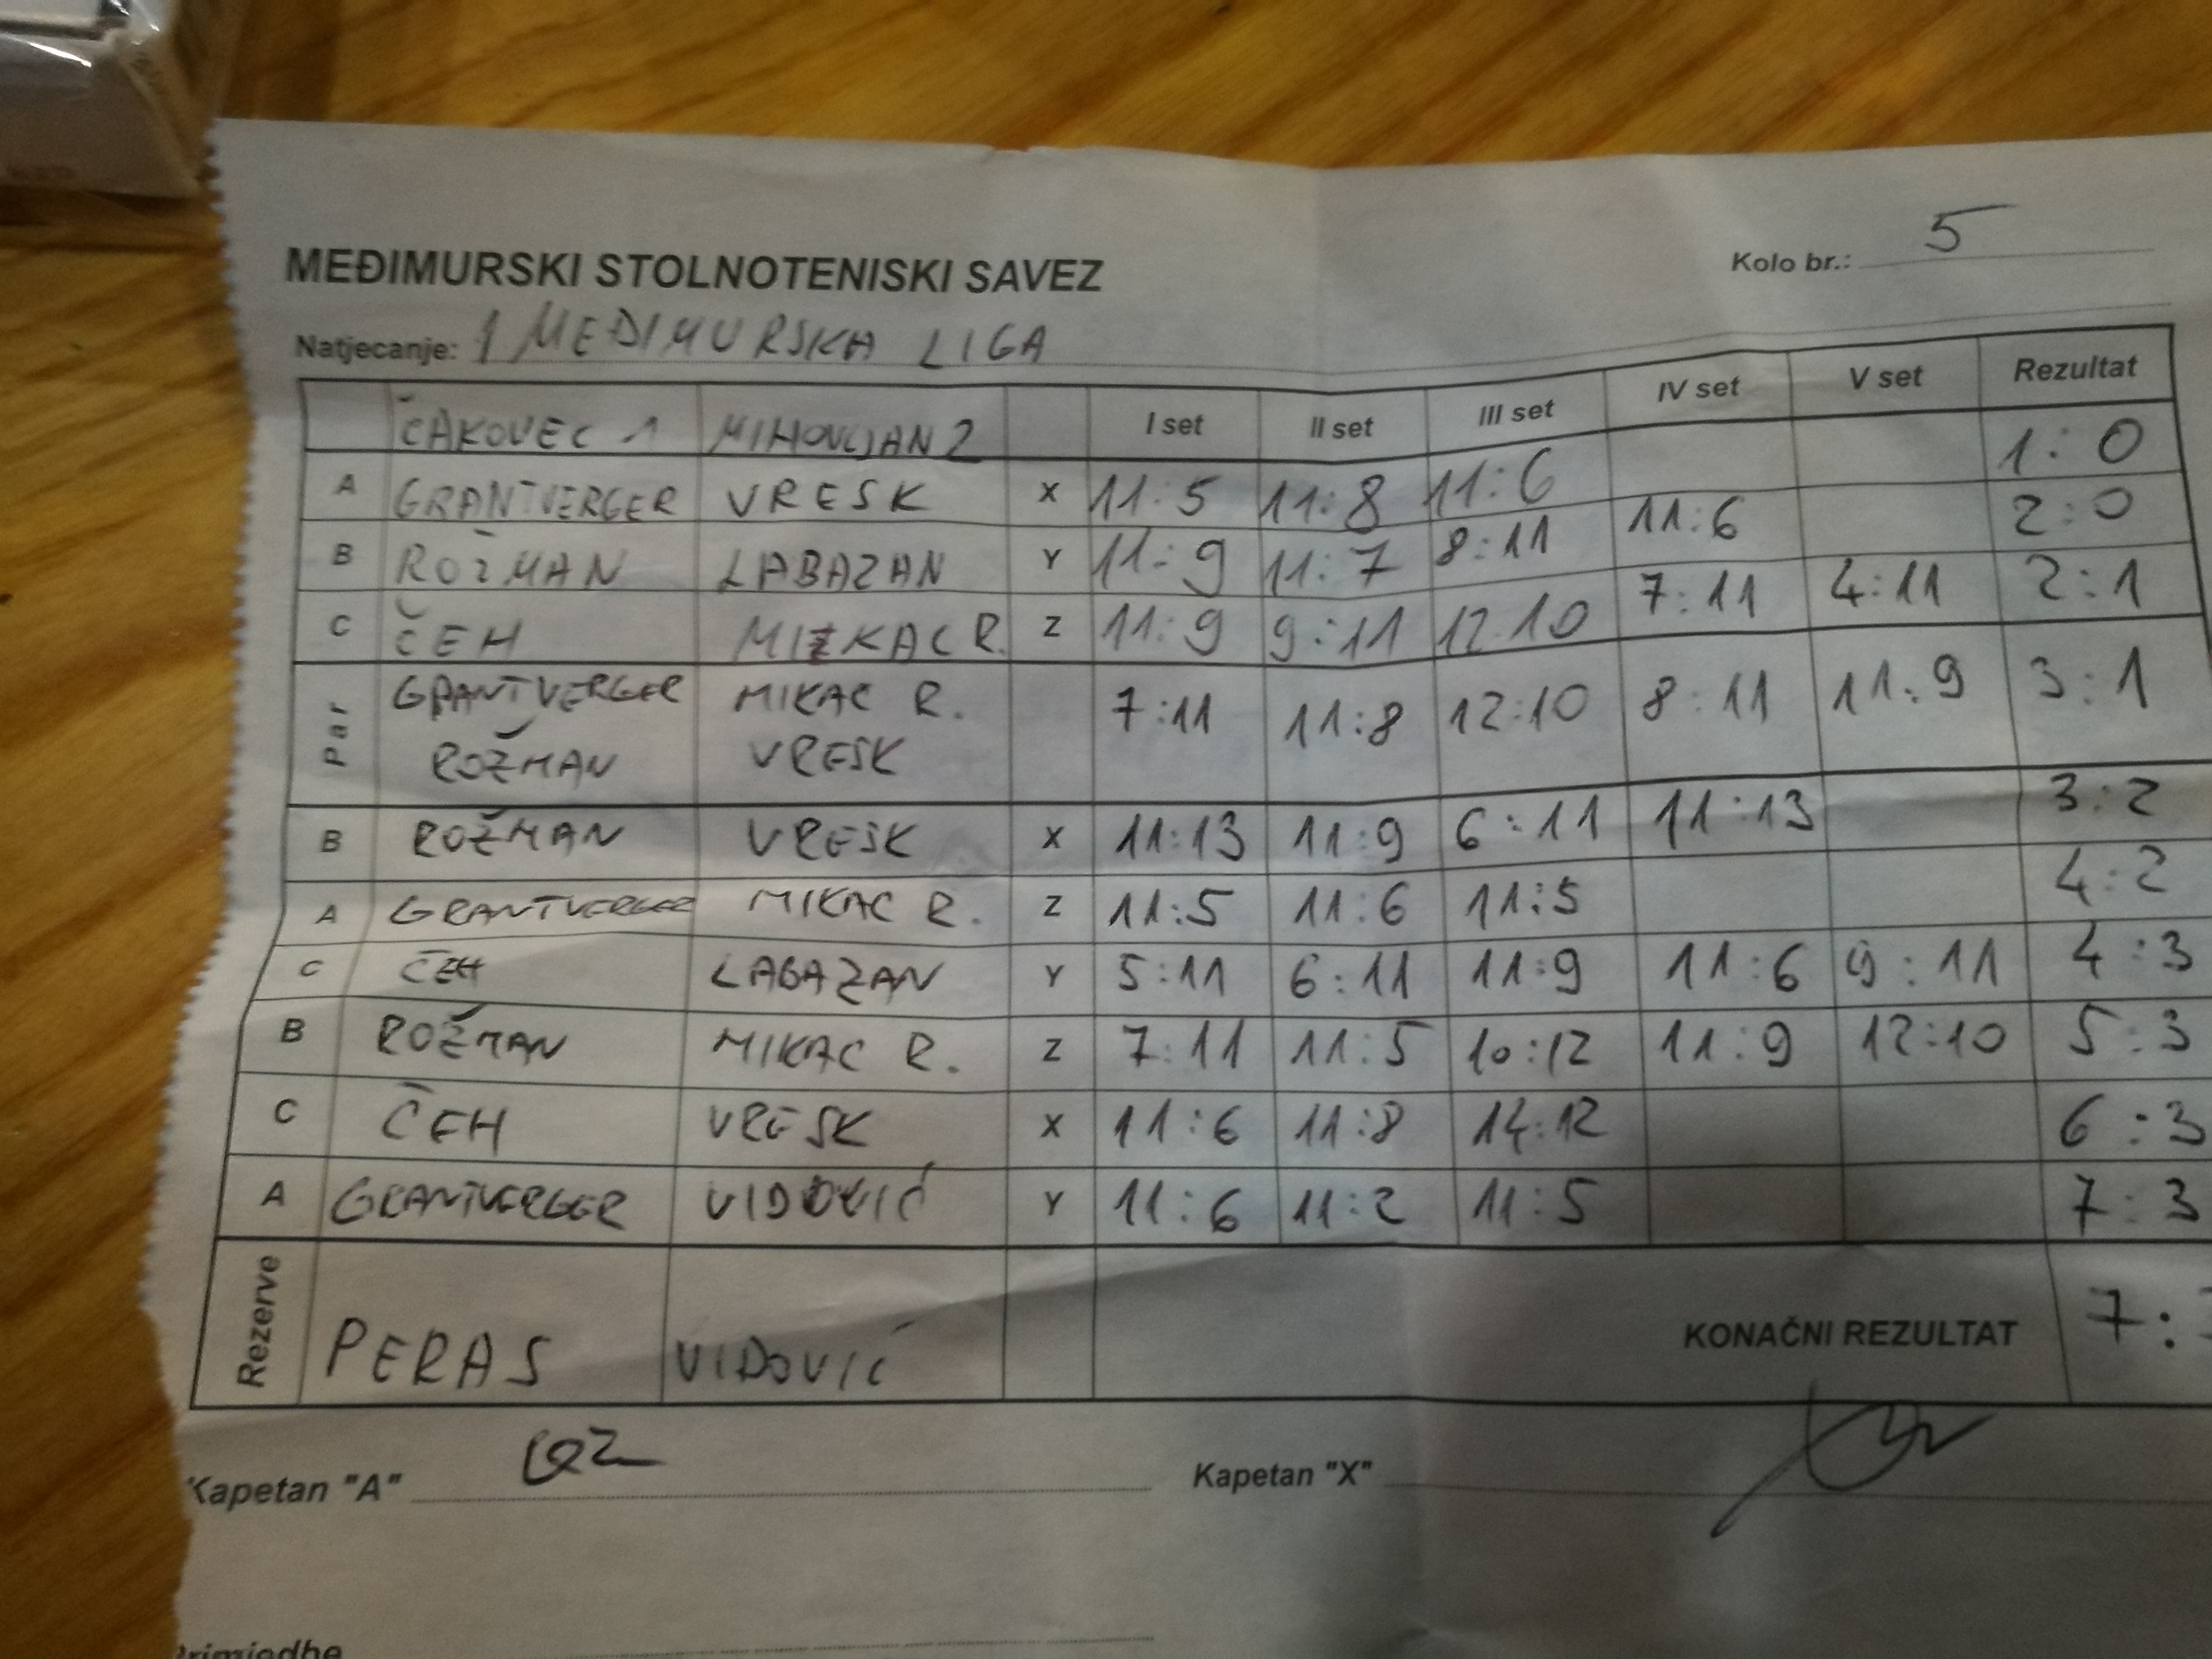 MEĐIMURSKI STOLNOTENISKI SAVEZ
Kolo br.: 5
Natjecanje: 1 MEĐIMURSKA LIGA
ČAKOVEC 1 MIHOVLJAN 2 I set II set III set IV set V set Rezultat
A GRANTVERGER VRESK X 11:5 11:8 11:6 1:0
B ROŽMAN LABAZAN Y 11:9 11:7 8:11 11:6 2:0
C ČEH MIKAC R. Z 11:9 9:11 12:10 7:11 4:11 2:1
Par GRANTVERGER MIKAC R. 7:11 11:8 12:10 8:11 11:9 3:1
ROŽMAN VRESK
B ROŽMAN VRESK X 11:13 11:9 6:11 11:13 3:2
A GRANTVERGER MIKAC R. Z 11:5 11:6 11:5 4:2
C ČEH LABAZAN Y 5:11 6:11 11:9 11:6 9:11 4:3
B ROŽMAN MIKAC R. Z 7:11 11:5 10:12 11:9 12:10 5:3
C ČEH VRESK X 11:6 11:8 14:12 6:3
A GRANTVERGER VIDOVIĆ Y 11:6 11:2 11:5 7:3
Rezerve PERAS VIDOVIĆ KONAČNI REZULTAT 7:
Kapetan "A" Kapetan "X"